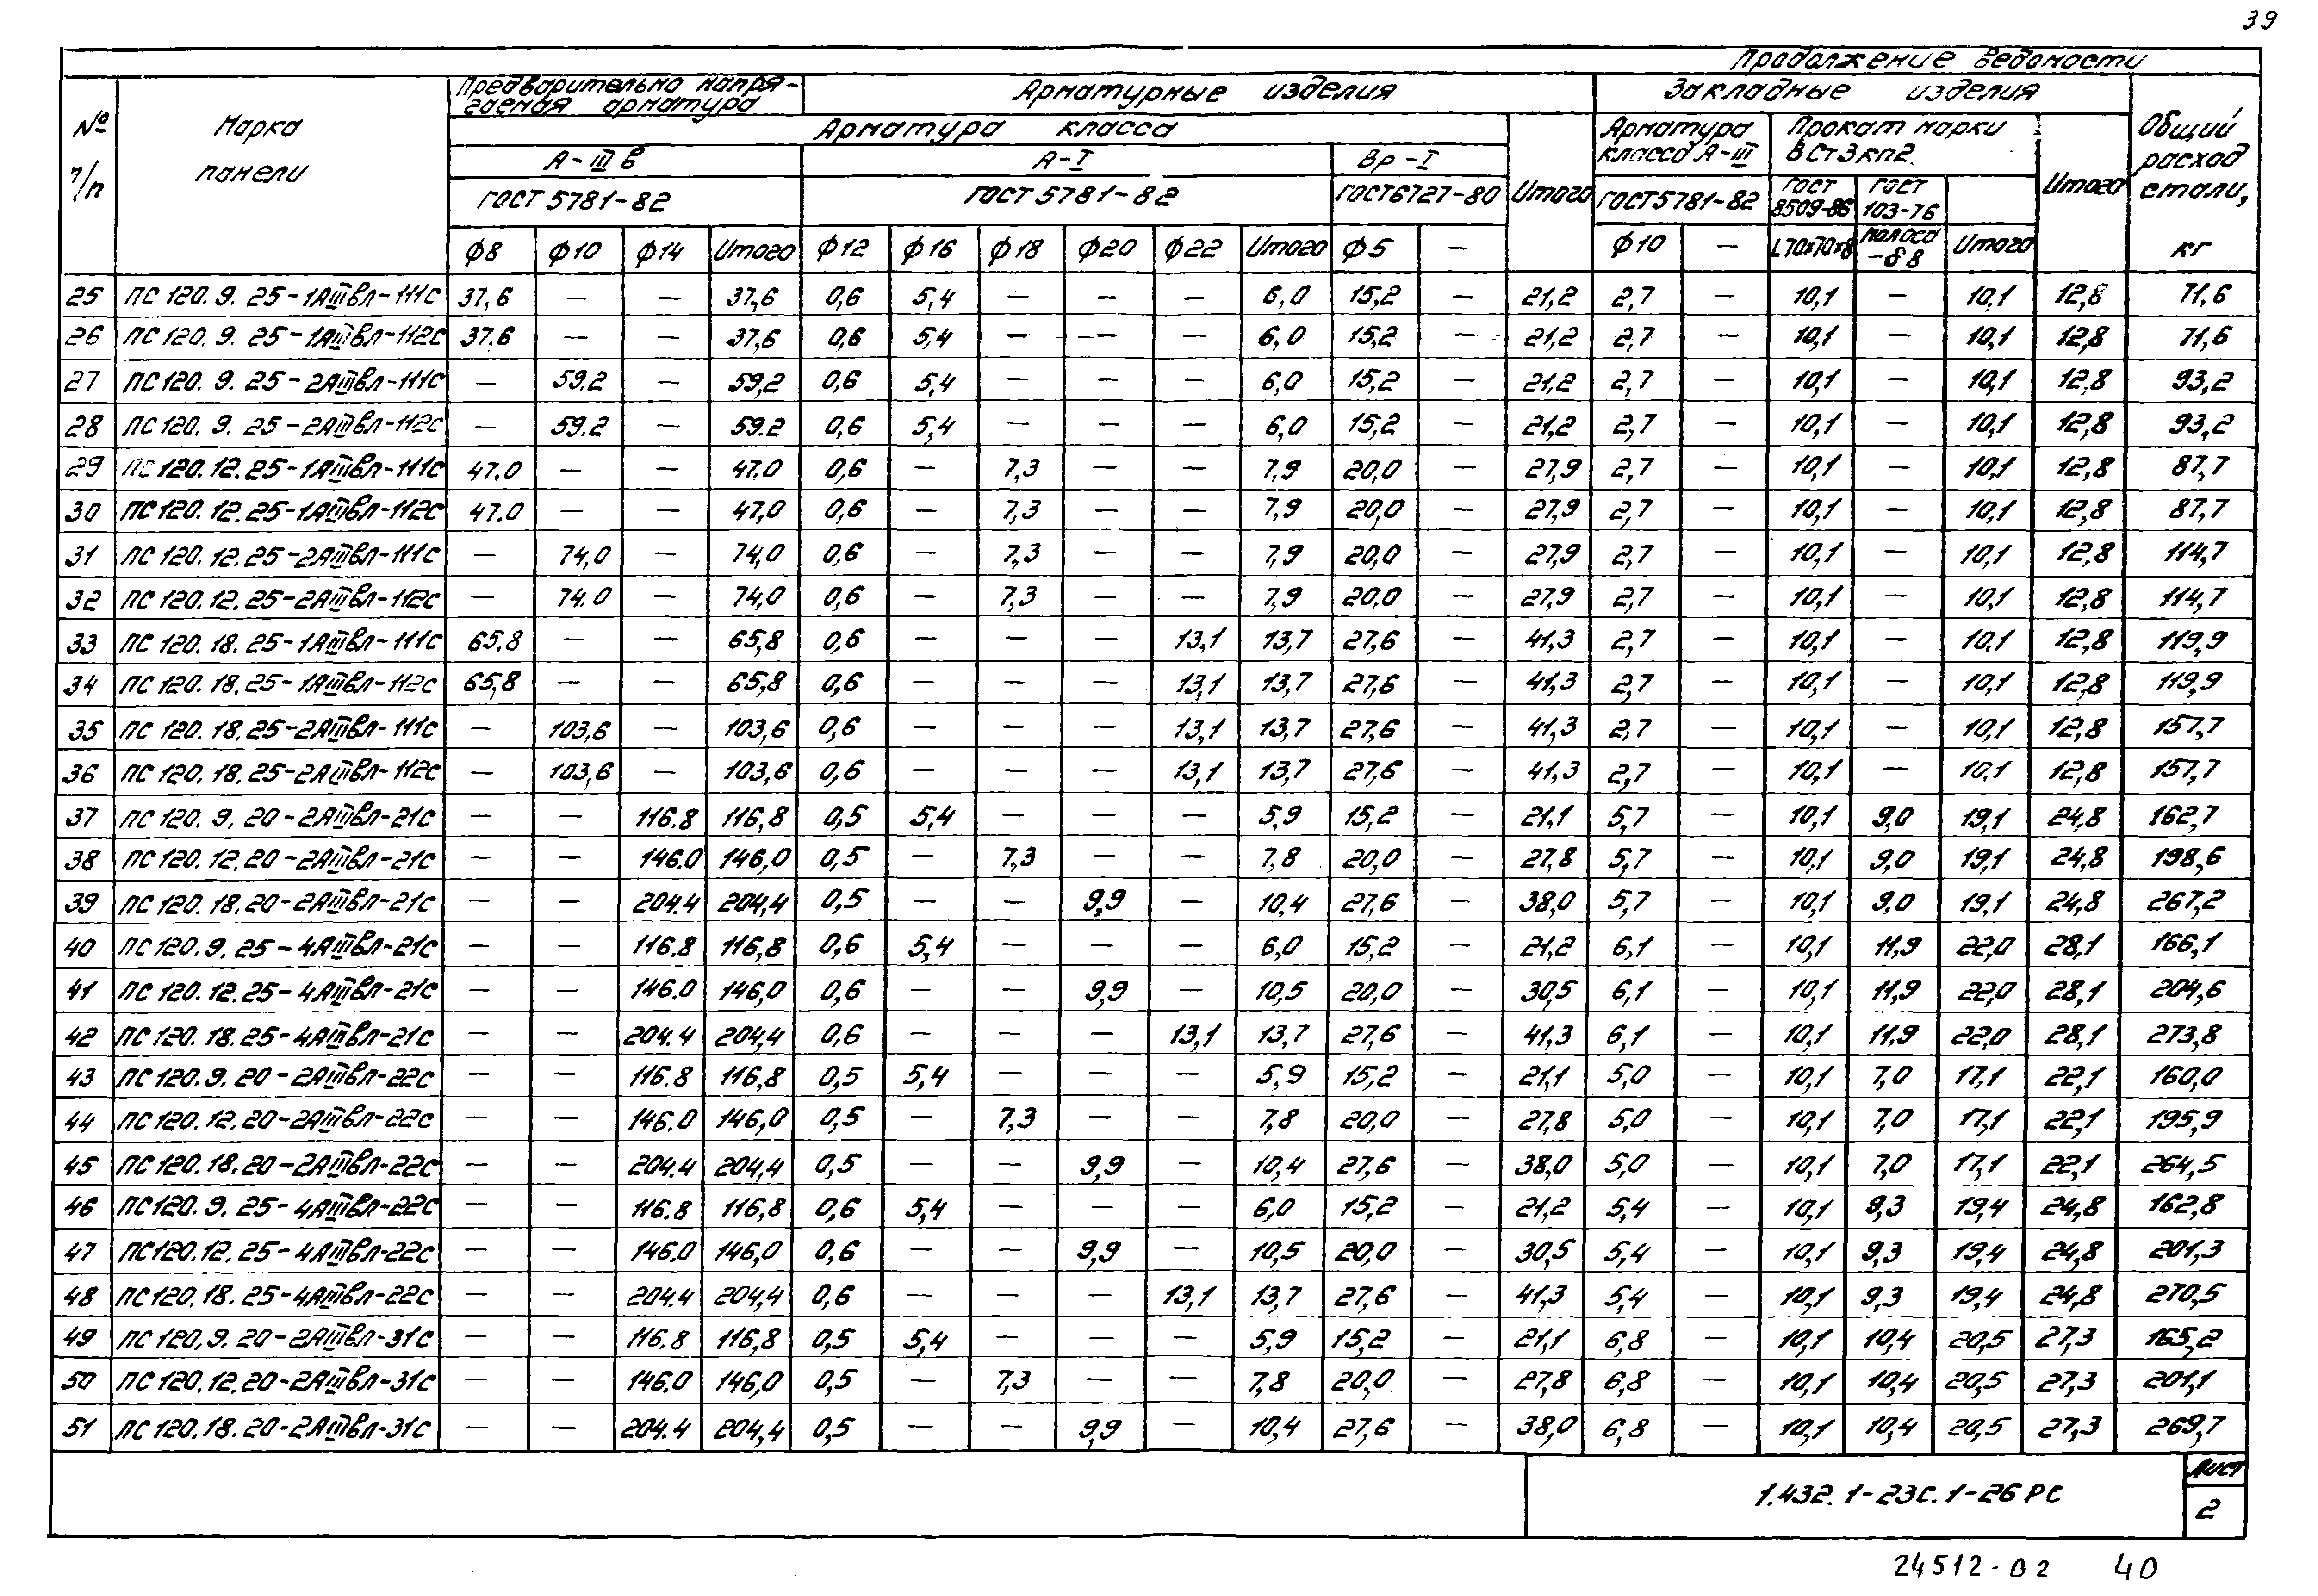 39
Продолжение ведомости
№ п/п
Марка панели
Предварительно напря-
гаемая арматура
Арматурные изделия
Закладные изделия
Общий расход стали, кг
Арматура класса
Арматура класса А-III
Прокат марки ВСт3кп2
Итого
А-IIIв
А-I
Вр-I
Итого
ГОСТ 5781-82
ГОСТ 5781-82
ГОСТ 6727-80
ГОСТ 5781-82
ГОСТ 8509-86
ГОСТ 103-76
Ф8 Ф10 Ф14 Итого Ф12 Ф16 Ф18 Ф20 Ф22 Итого Ф5 — Ф10 — L70х70х8 полоса -δ8 Итого
25 ПС 120.9.25-1АIIIвл-111с 37,6 — — 37,6 0,6 5,4 — — — 6,0 15,2 — 21,2 2,7 — 10,1 — 10,1 12,8 71,6
26 ПС 120.9.25-1АIIIвл-112с 37,6 — — 37,6 0,6 5,4 — — — 6,0 15,2 — 21,2 2,7 — 10,1 — 10,1 12,8 71,6
27 ПС 120.9.25-2АIIIвл-111с — 59.2 — 59,2 0,6 5,4 — — — 6,0 15,2 — 21,2 2,7 — 10,1 — 10,1 12,8 93,2
28 ПС 120.9.25-2АIIIвл-112с — 59.2 — 59.2 0,6 5,4 — — — 6,0 15,2 — 21,2 2,7 — 10,1 — 10,1 12,8 93,2
29 ПС 120.12.25-1АIIIвл-111с 47.0 — — 47.0 0,6 — 7,3 — — 7,9 20,0 — 27,9 2,7 — 10,1 — 10,1 12,8 87,7
30 ПС 120.12.25-1АIIIвл-112с 47.0 — — 47,0 0,6 — 7,3 — — 7,9 20,0 — 27,9 2,7 — 10,1 — 10,1 12,8 87,7
31 ПС 120.12.25-2АIIIвл-111с — 74,0 — 74,0 0,6 — 7,3 — — 7,9 20,0 — 27,9 2,7 — 10,1 — 10,1 12,8 114,7
32 ПС 120.12.25-2АIIIвл-112с — 74.0 — 74,0 0,6 — 7,3 — — 7,9 20,0 — 27,9 2,7 — 10,1 — 10,1 12,8 114,7
33 ПС 120.18.25-1АIIIвл-111с 65,8 — — 65,8 0,6 — — — 13,1 13,7 27,6 — 41,3 2,7 — 10,1 — 10,1 12,8 119,9
34 ПС 120.18.25-1АIIIвл-112с 65,8 — — 65,8 0,6 — — — 13,1 13,7 27,6 — 41,3 2,7 — 10,1 — 10,1 12,8 119,9
35 ПС 120.18.25-2АIIIвл-111с — 103,6 — 103,6 0,6 — — — 13,1 13,7 27,6 — 41,3 2,7 — 10,1 — 10,1 12,8 157,7
36 ПС 120.18.25-2АIIIвл-112с — 103,6 — 103,6 0,6 — — — 13,1 13,7 27,6 — 41,3 2,7 — 10,1 — 10,1 12,8 157,7
37 ПС 120.9.20-2АIIIвл-21с — — 116.8 116,8 0,5 5,4 — — — 5,9 15,2 — 21,1 5,7 — 10,1 9,0 19,1 24,8 162,7
38 ПС 120.12.20-2АIIIвл-21с — — 146.0 146,0 0,5 — 7,3 — — 7,8 20,0 — 27,8 5,7 — 10,1 9,0 19,1 24,8 198,6
39 ПС 120.18.20-2АIIIвл-21с — — 204.4 204,4 0,5 — — 9,9 — 10,4 27,6 — 38,0 5,7 — 10,1 9,0 19,1 24,8 267,2
40 ПС 120.9.25-4АIIIвл-21с — — 116.8 116,8 0,6 5,4 — — — 6,0 15,2 — 21,2 6,1 — 10,1 11,9 22,0 28,1 166,1
41 ПС 120.12.25-4АIIIвл-21с — — 146.0 146,0 0,6 — — 9,9 — 10,5 20,0 — 30,5 6,1 — 10,1 11,9 22,0 28,1 204,6
42 ПС 120.18.25-4АIIIвл-21с — — 204.4 204,4 0,6 — — — 13,1 13,7 27,6 — 41,3 6,1 — 10,1 11,9 22,0 28,1 273,8
43 ПС 120.9.20-2АIIIвл-22с — — 116.8 116,8 0,5 5,4 — — — 5,9 15,2 — 21,1 5,0 — 10,1 7,0 17,1 22,1 160,0
44 ПС 120.12.20-2АIIIвл-22с — — 146.0 146,0 0,5 — 7,3 — — 7,8 20,0 — 27,8 5,0 — 10,1 7,0 17,1 22,1 195,9
45 ПС 120.18.20-2АIIIвл-22с — — 204.4 204,4 0,5 — — 9,9 — 10,4 27,6 — 38,0 5,0 — 10,1 7,0 17,1 22,1 264,5
46 ПС 120.9.25-4АIIIвл-22с — — 116.8 116,8 0,6 5,4 — — — 6,0 15,2 — 21,2 5,4 — 10,1 9,3 19,4 24,8 162,8
47 ПС 120.12.25-4АIIIвл-22с — — 146.0 146,0 0,6 — — 9,9 — 10,5 20,0 — 30,5 5,4 — 10,1 9,3 19,4 24,8 201,3
48 ПС 120.18.25-4АIIIвл-22с — — 204.4 204,4 0,6 — — — 13,1 13,7 27,6 — 41,3 5,4 — 10,1 9,3 19,4 24,8 270,5
49 ПС 120.9.20-2АIIIвл-31с — — 116.8 116,8 0,5 5,4 — — — 5,9 15,2 — 21,1 6,8 — 10,1 10,4 20,5 27,3 165,2
50 ПС 120.12.20-2АIIIвл-31с — — 146.0 146,0 0,5 — 7,3 — — 7,8 20,0 — 27,8 6,8 — 10,1 10,4 20,5 27,3 201,1
51 ПС 120.18.20-2АIIIвл-31с — — 204.4 204,4 0,5 — — 9,9 — 10,4 27,6 — 38,0 6,8 — 10,1 10,4 20,5 27,3 269,7
1.432.1-23с.1-26 РС
Лист
2
24512-02 40